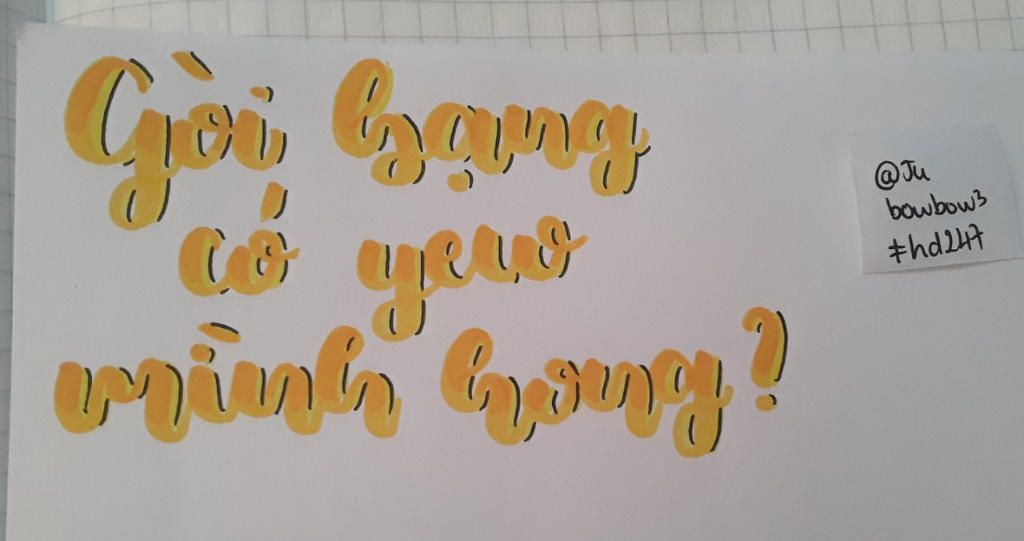 Gòi bạng
có yew
mình hong?
@Ju
bowbow3
#hd247